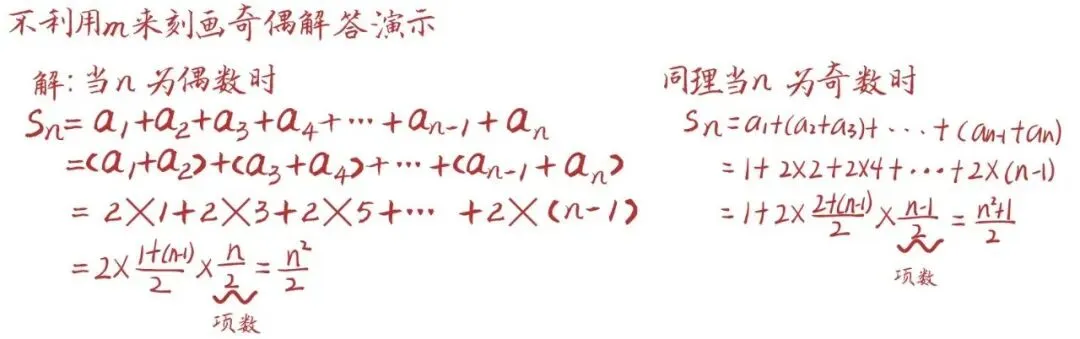 不利用m来刻画奇偶解答演示
解:当n 为偶数时
Sn=a₁+a₂+a₃+a₄+⋯+aₙ₋₁+aₙ
=(a₁+a₂)+(a₃+a₄)+⋯+(aₙ₋₁+aₙ)
=2×1+2×3+2×5+⋯ +2×(n-1)
=2×\frac{1+(n-1)}{2}×\frac{n}{2}=\frac{n²}{2}
项数
同理当n 为奇数时
Sn=a₁+(a₂+a₃)+⋯+(aₙ₋₁+aₙ)
=1+2×2+2×4+⋯+2×(n-1)
=1+2×\frac{2+(n-1)}{2}×\frac{n-1}{2}=\frac{n²+1}{2}
项数